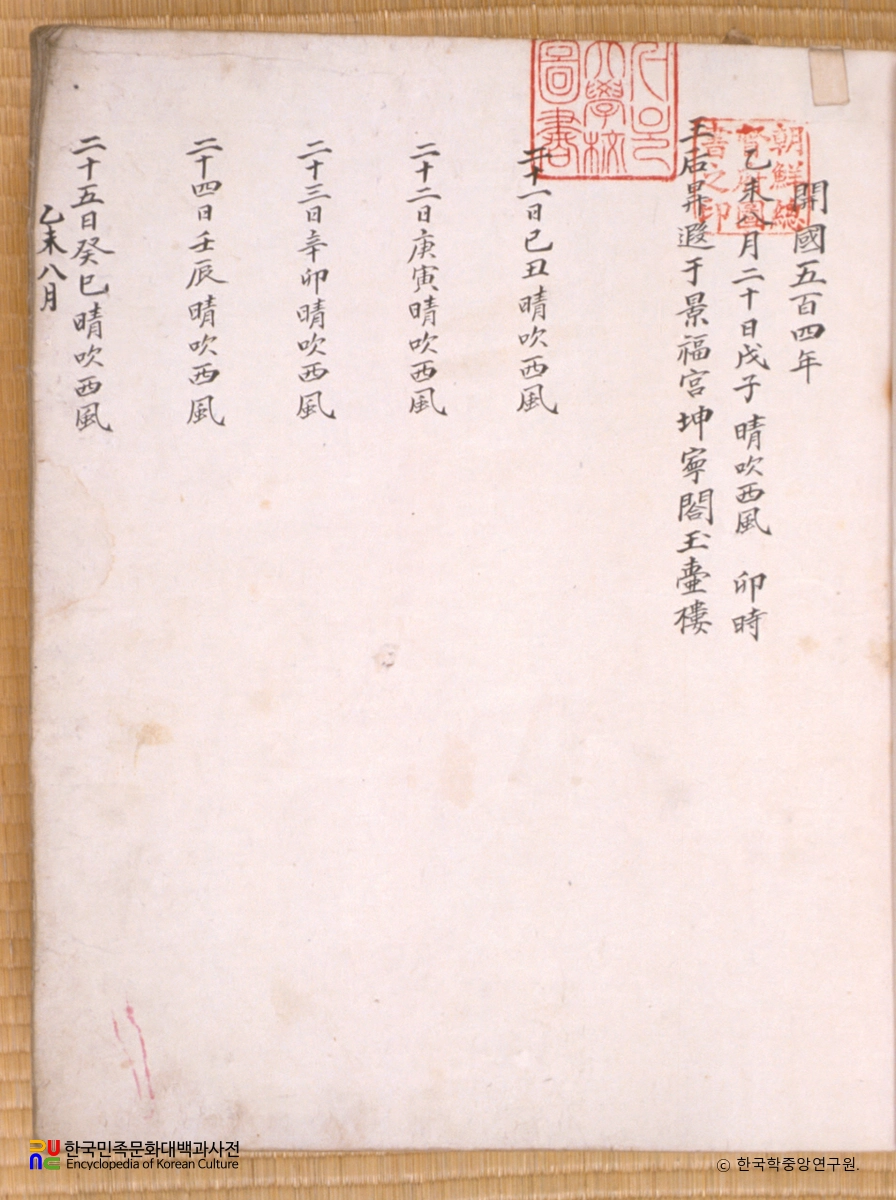 開國五百四年
乙未八月二十日戊子晴吹西風 卯時
王后昇遐于景福宮坤寧閤玉壷樓
二十一日己丑晴吹西風
二十二日庚寅晴吹西風
二十三日辛卯晴吹西風
二十四日壬辰晴吹西風
二十五日癸巳晴吹西風
乙未八月
朝鮮總
督府圖
書之印
大學校
圖書
한국민족문화대백과사전
Encyclopedia of Korean Culture
© 한국학중앙연구원.